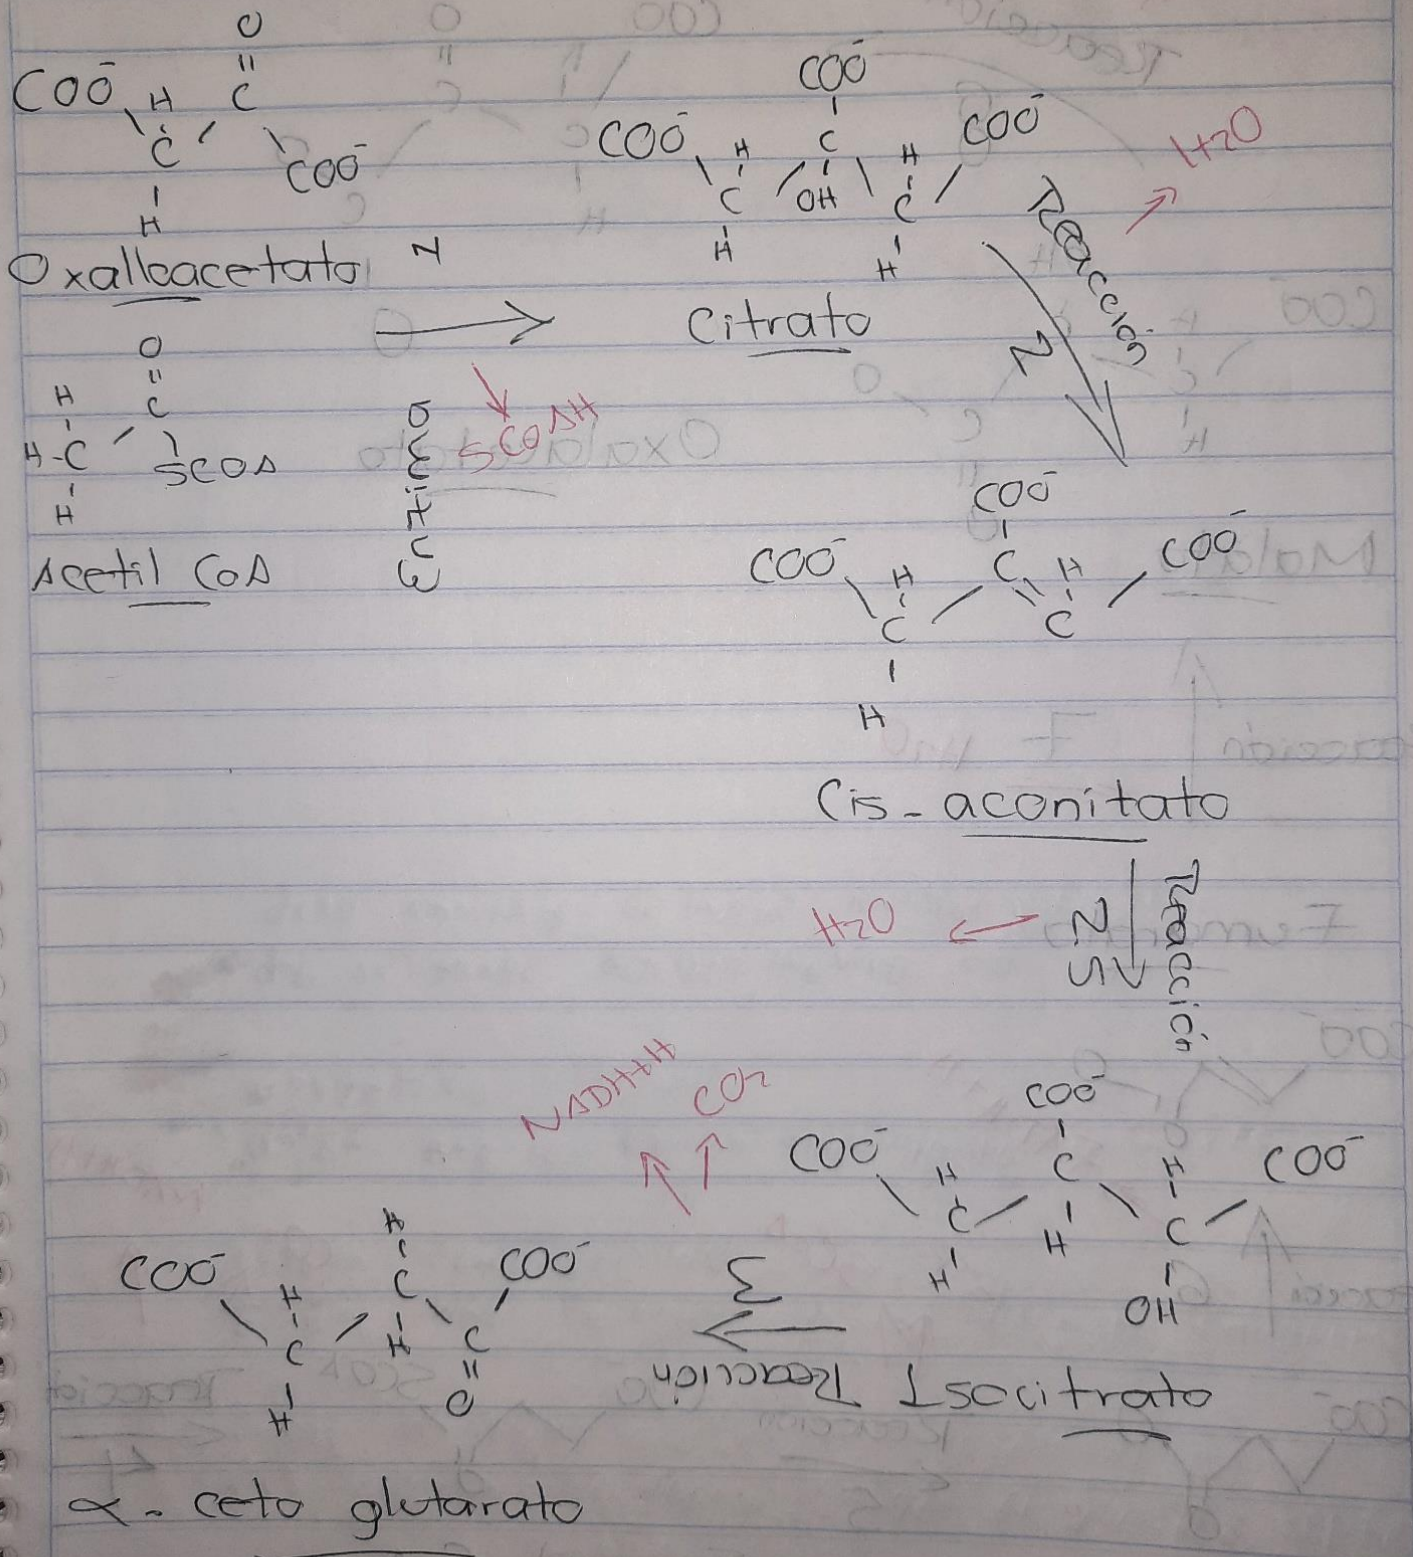 O
COO⁻ H C
C COO⁻
H
Oxalloacetato
O
H C
H-C SCOA
H
Acetil CoA
Enzima
SCOAH
COO⁻
COO⁻ H C H COO⁻
C OH C
H H
Citrato
Reacción
2
H2O
COO⁻
COO⁻ H C H COO⁻
C C
H
Cis-aconitato
Reacción
2.5
H2O
COO⁻
COO⁻ H C H COO⁻
C H C
H OH
Isocitrato
Reacción
3
NADH+H
CO2
H
COO⁻ H C COO⁻
C H C
H O
α-ceto glutarato